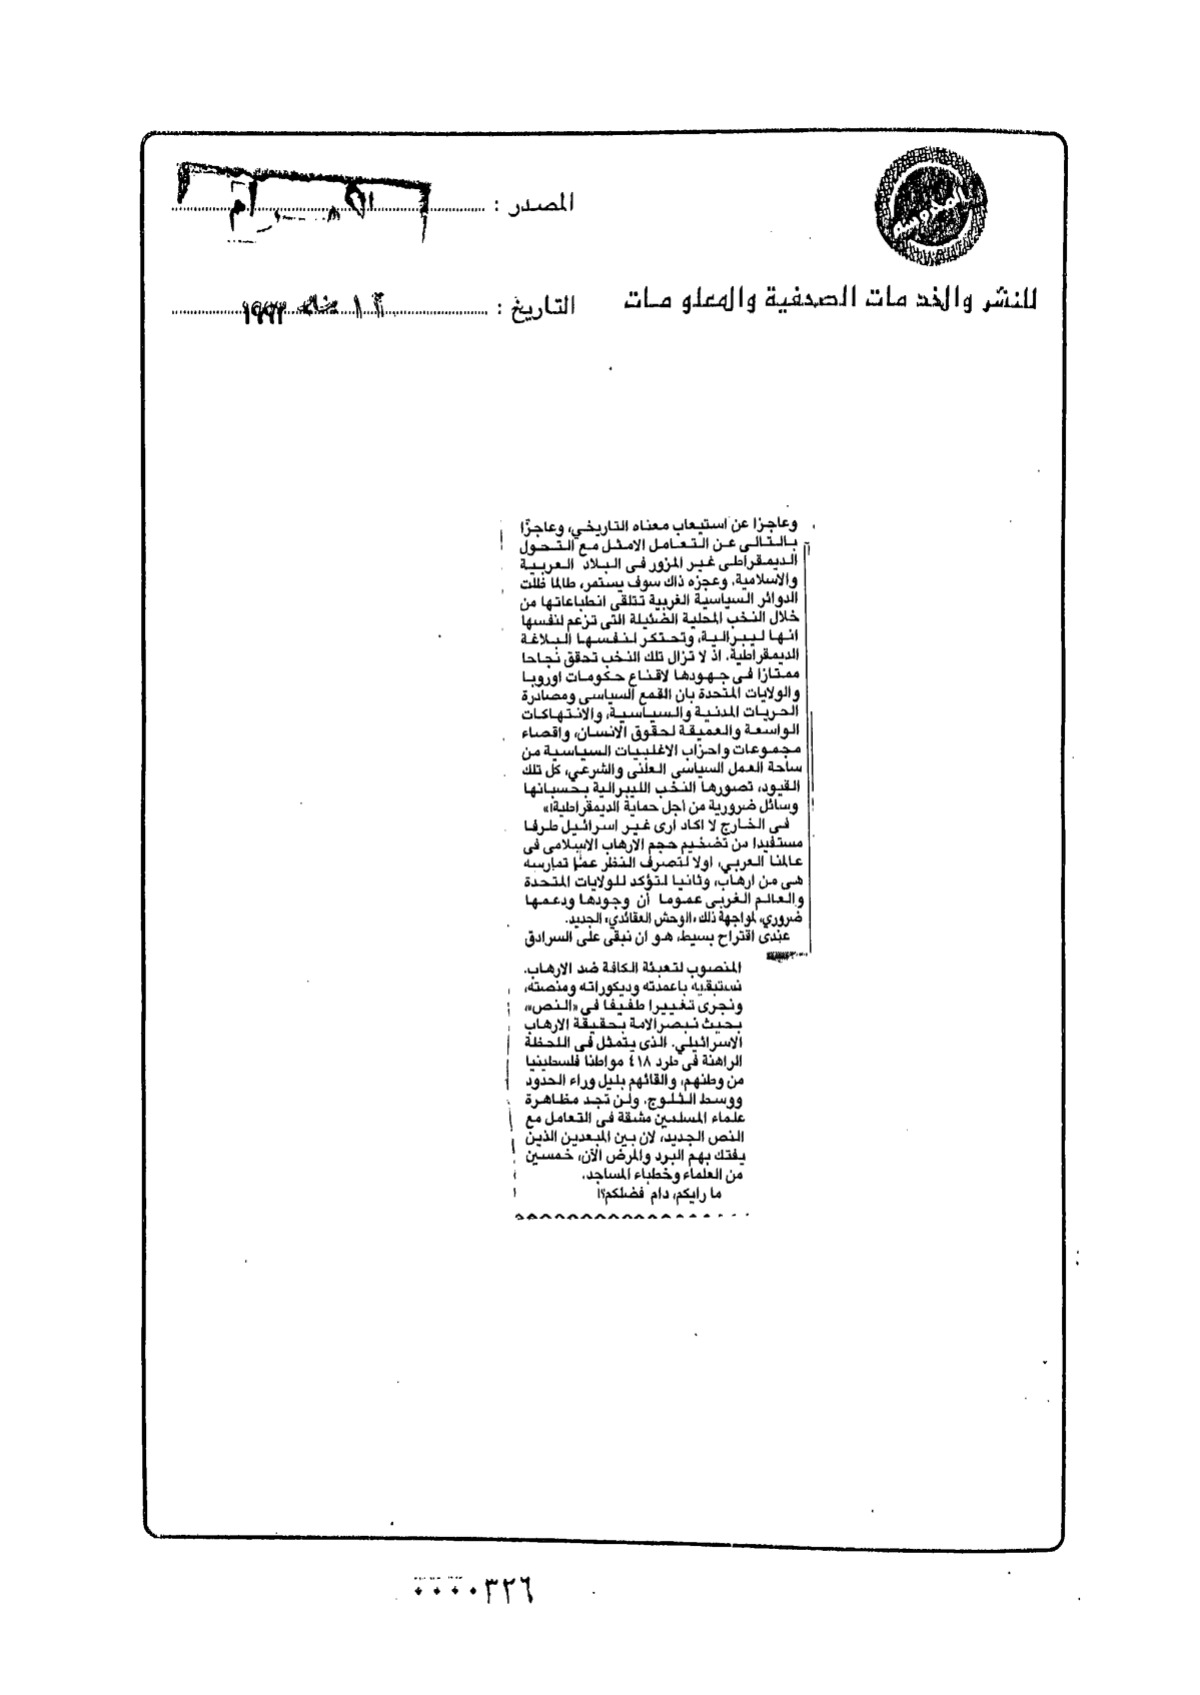 المصدر :
للنشر والخدمات الصحفية والمعلومات
التاريخ : ١٩٩٣
وعاجزا عن استيعاب معناه التاريخي، وعاجزًا
بالتالى عن التعامل الامثل مع التحول
الديمقراطى غير المزور فى البلاد العربية
والاسلامية. وعجزه ذاك سوف يستمر، طالما ظلت
الدوائر السياسية الغربية تتلقى انطباعاتها من
خلال النخب المحلية الضئيلة التى تزعم لنفسها
انها ليبرالية، وتحتكر لنفسها البلاغة
الديمقراطية. اذ لا تزال تلك النخب تحقق نجاحا
ممتازا فى جهودها لاقناع حكومات اوروبا
والولايات المتحدة بان القمع السياسى ومصادرة
الحريات المدنية والسياسية، والانتهاكات
الواسعة والعميقة لحقوق الانسان، واقصاء
مجموعات واحزاب الاغلبيات السياسية من
ساحة العمل السياسى العلنى والشرعي، كل تلك
القيود، تصورها النخب الليبرالية بحسبانها
وسائل ضرورية من أجل حماية الديمقراطية!»
فى الخارج لا اكاد أرى غير اسرائيل طرفا
مستفيدا من تضخيم حجم الارهاب الاسلامى فى
عالمنا العربي، اولا لتصرف النظر عما تمارسه
هى من ارهاب، وثانيا لتؤكد للولايات المتحدة
والعالم الغربى عموما أن وجودها ودعمها
ضروري، لمواجهة ذلك «الوحش العقائدي» الجديد.
عندى اقتراح بسيط، هو ان نبقى على السرادق
المنصوب لتعبئة الكافة ضد الارهاب.
نستبقيه باعمدته وديكوراته ومنصته،
ونجرى تغييرا طفيفا فى «النص»،
بحيث نبصر الامة بحقيقة الارهاب
الاسرائيلي. الذى يتمثل فى اللحظة
الراهنة فى طرد ٤١٨ مواطنا فلسطينيا
من وطنهم، والقائهم بليل وراء الحدود
ووسط الثلوج. ولن تجد مظاهرة
علماء المسلمين مشقة فى التعامل مع
النص الجديد، لان بين المبعدين الذين
يفتك بهم البرد والمرض الآن، خمسين
من العلماء وخطباء المساجد.
ما رايكم، دام فضلكم؟!
٠٠٠٠٣٢٦